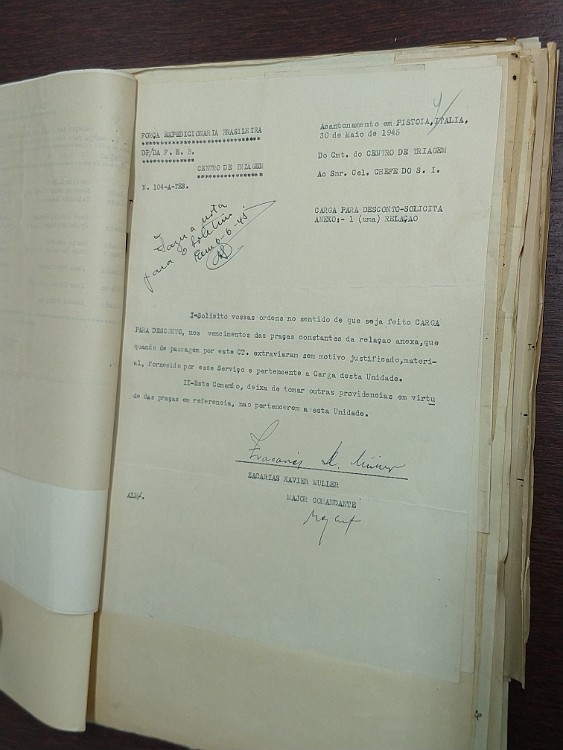 FORÇA EXPEDICIONARIA BRASILEIRA
DP/DA F. E. B.
CENTRO DE TRIAGEM
N. 104-A-TES.
Acantonamento em PISTOIA, ITALIA,
30 de Maio de 1945
Do Cmt. do CENTRO DE TRIAGEM
Ao Snr. Cel. CHEFE DO S. I.
CARGA PARA DESCONTO-SOLICITA
ANEXO:- 1 (uma) RELAÇÃO
Faça a nota
para o boletim
I-Solicito vossas ordens no sentido de que seja feito CARGA
PARA DESCONTO, nos vencimentos das praças constantes da relação anexa,que
quando de passagem por este CT. extraviaram sem motivo justificado,materi-
al, fornecido por esse Serviço e pertencente a Carga desta Unidade.
II-Este Comando, deixa de tomar outras providencias em virtu
de das praças em referencia, nao pertencerem a esta Unidade.
Zacarias X. Müller
ZACARIAS XAVIER MULLER
MAJOR COMANDANTE